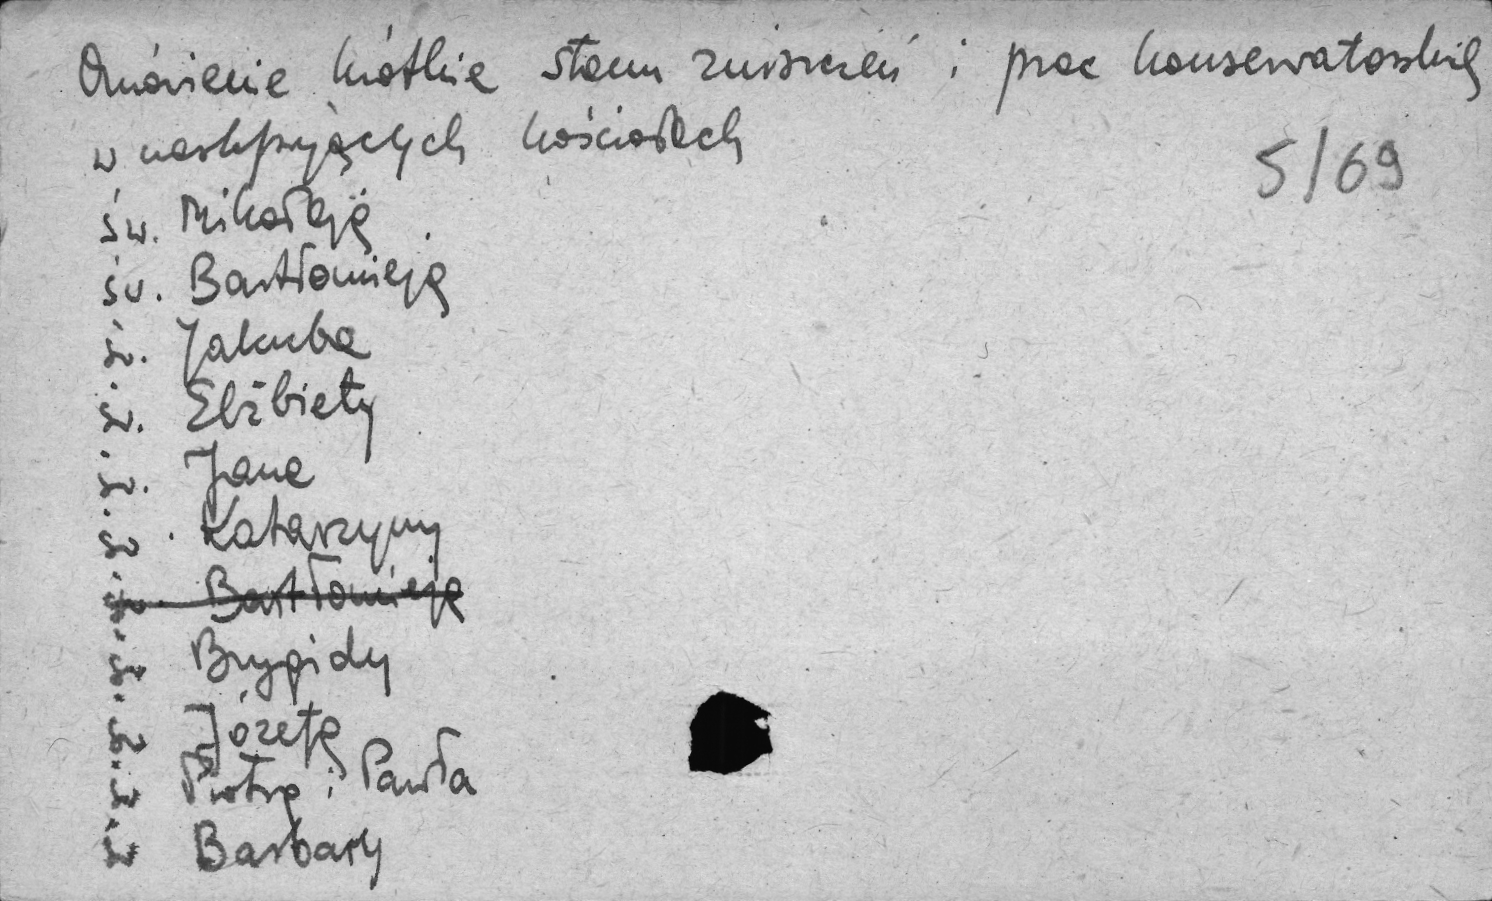 Omówienie krótkie stanu zniszczeń i prac konserwatorskich
w następujących kościołach
5/69
św. Mikołaja
św. Bartłomieja
św. Jakuba
św. Elżbiety
św. Jana
św. Katarzyny
św. Bartłomieja
św Brygidy
św Józefa
św Piotra i Pawła
św Barbary